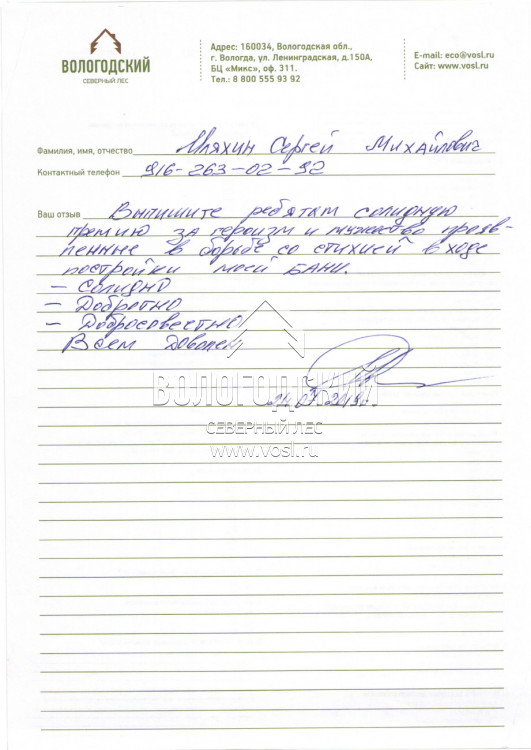 ВОЛОГОДСКИЙ
СЕВЕРНЫЙ ЛЕС
Адрес: 160034, Вологодская обл.,
г. Вологда, ул. Ленинградская, д.150А,
БЦ «Микс», оф. 311.
Тел.: 8 800 555 93 92
E-mail: eco@vosl.ru
Сайт: www.vosl.ru
Фамилия, имя, отчество Сергей Михайлович
Контактный телефон 916-263-02-92
Ваш отзыв Выпишите ребятам солидную
премию за героизм и мужество прояв-
ленные в борьбе со стихией в ходе
постройки моей БАНИ.
– Солидно
– Добротно
– Добросовестно
Всем доволен
ВОЛОГОДСКИЙ
СЕВЕРНЫЙ ЛЕС
www.vosl.ru